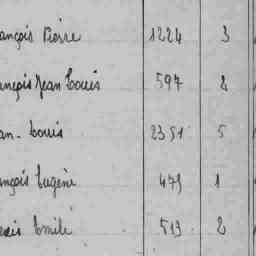 ançois Pierre 1224 3
ançois Jean Louis 597 2
an-Louis 2351 5
nçois Eugène 475 1
exis Emile 513 2